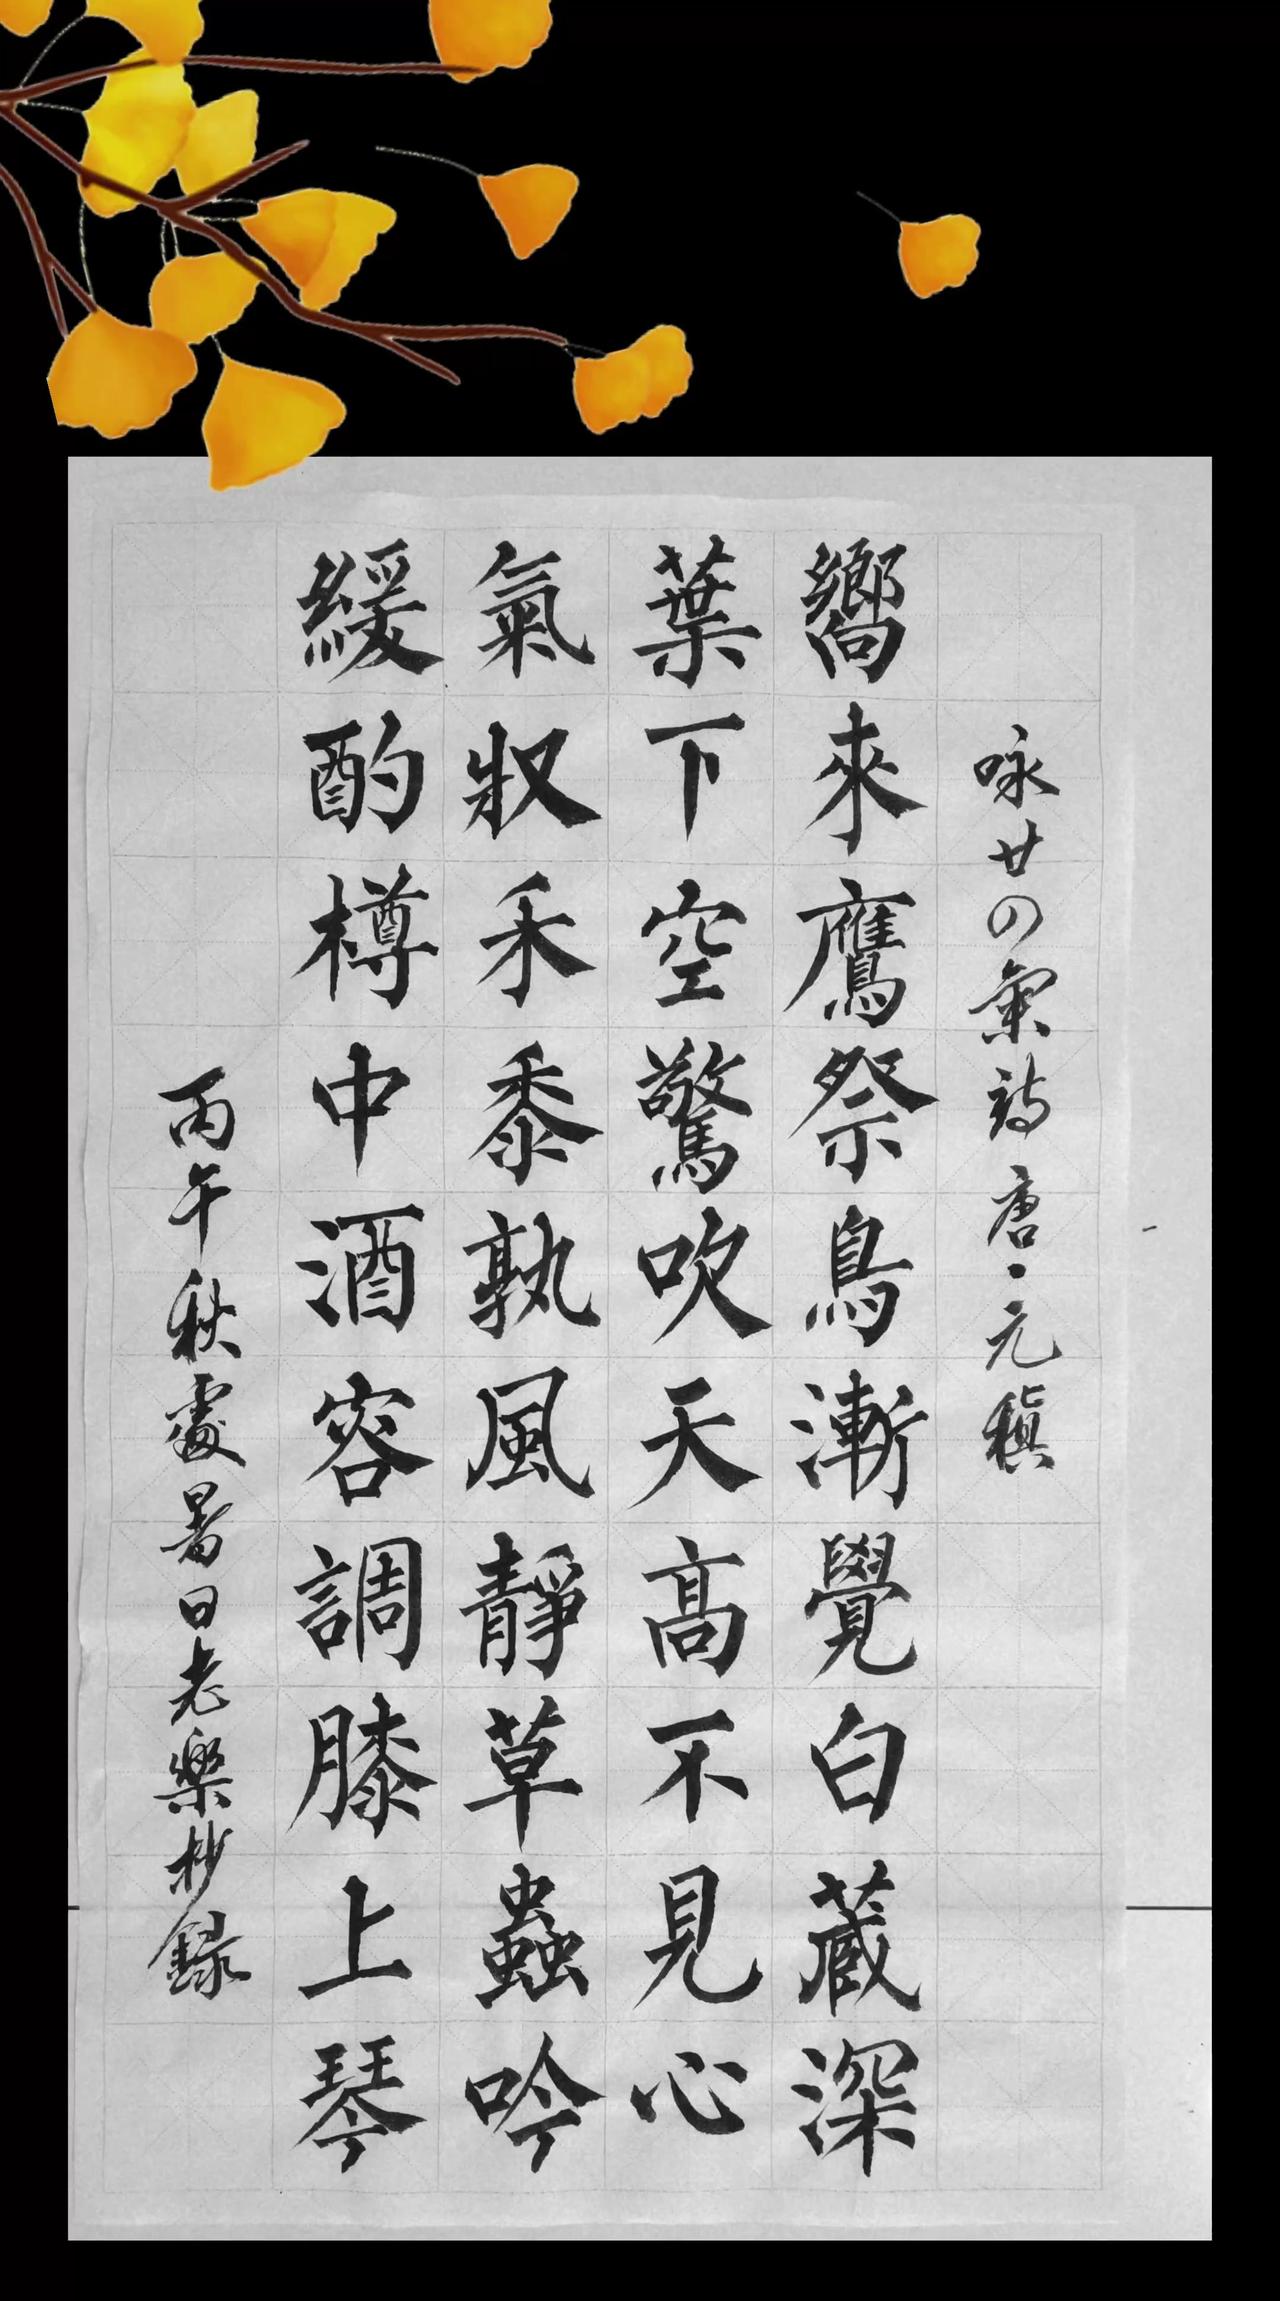 咏廿四氣詩 唐·元稹
嚮來鷹祭鳥漸覺白藏深
葉下空驚吹天高不見心
氣収禾黍孰風靜草蟲吟
緩酌樽中酒容調膝上琴
丙午秋處暑日老樂抄録